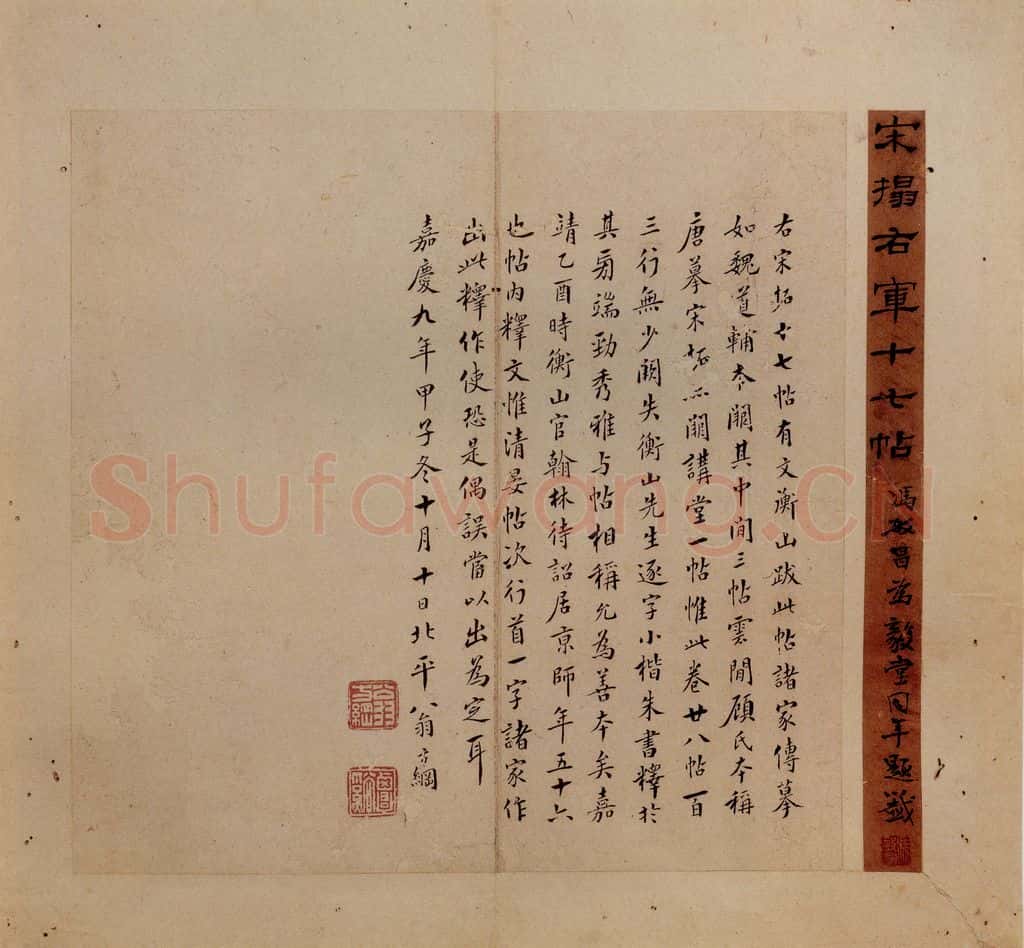 宋搨右軍十七帖 馮敏昌為毅堂同年題籤
右宋拓十七帖有文衡山跋此帖諸家傳摹
如魏道輔本闕其中間三帖雲間顧氏本稱
唐摹宋拓亦闕講堂一帖惟此卷廿八帖一百
三行無少闕失衡山先生逐字小楷朱書釋於
其旁端勁秀雅与帖相稱允為善本矣嘉
靖乙酉時衡山官翰林待詔居京師年五十六
也帖內釋文惟清晏帖次行首一字諸家作
出此釋作使恐是偶誤當以出為定耳
嘉慶九年甲子冬十月十日北平翁方綱
Shufawang.CN